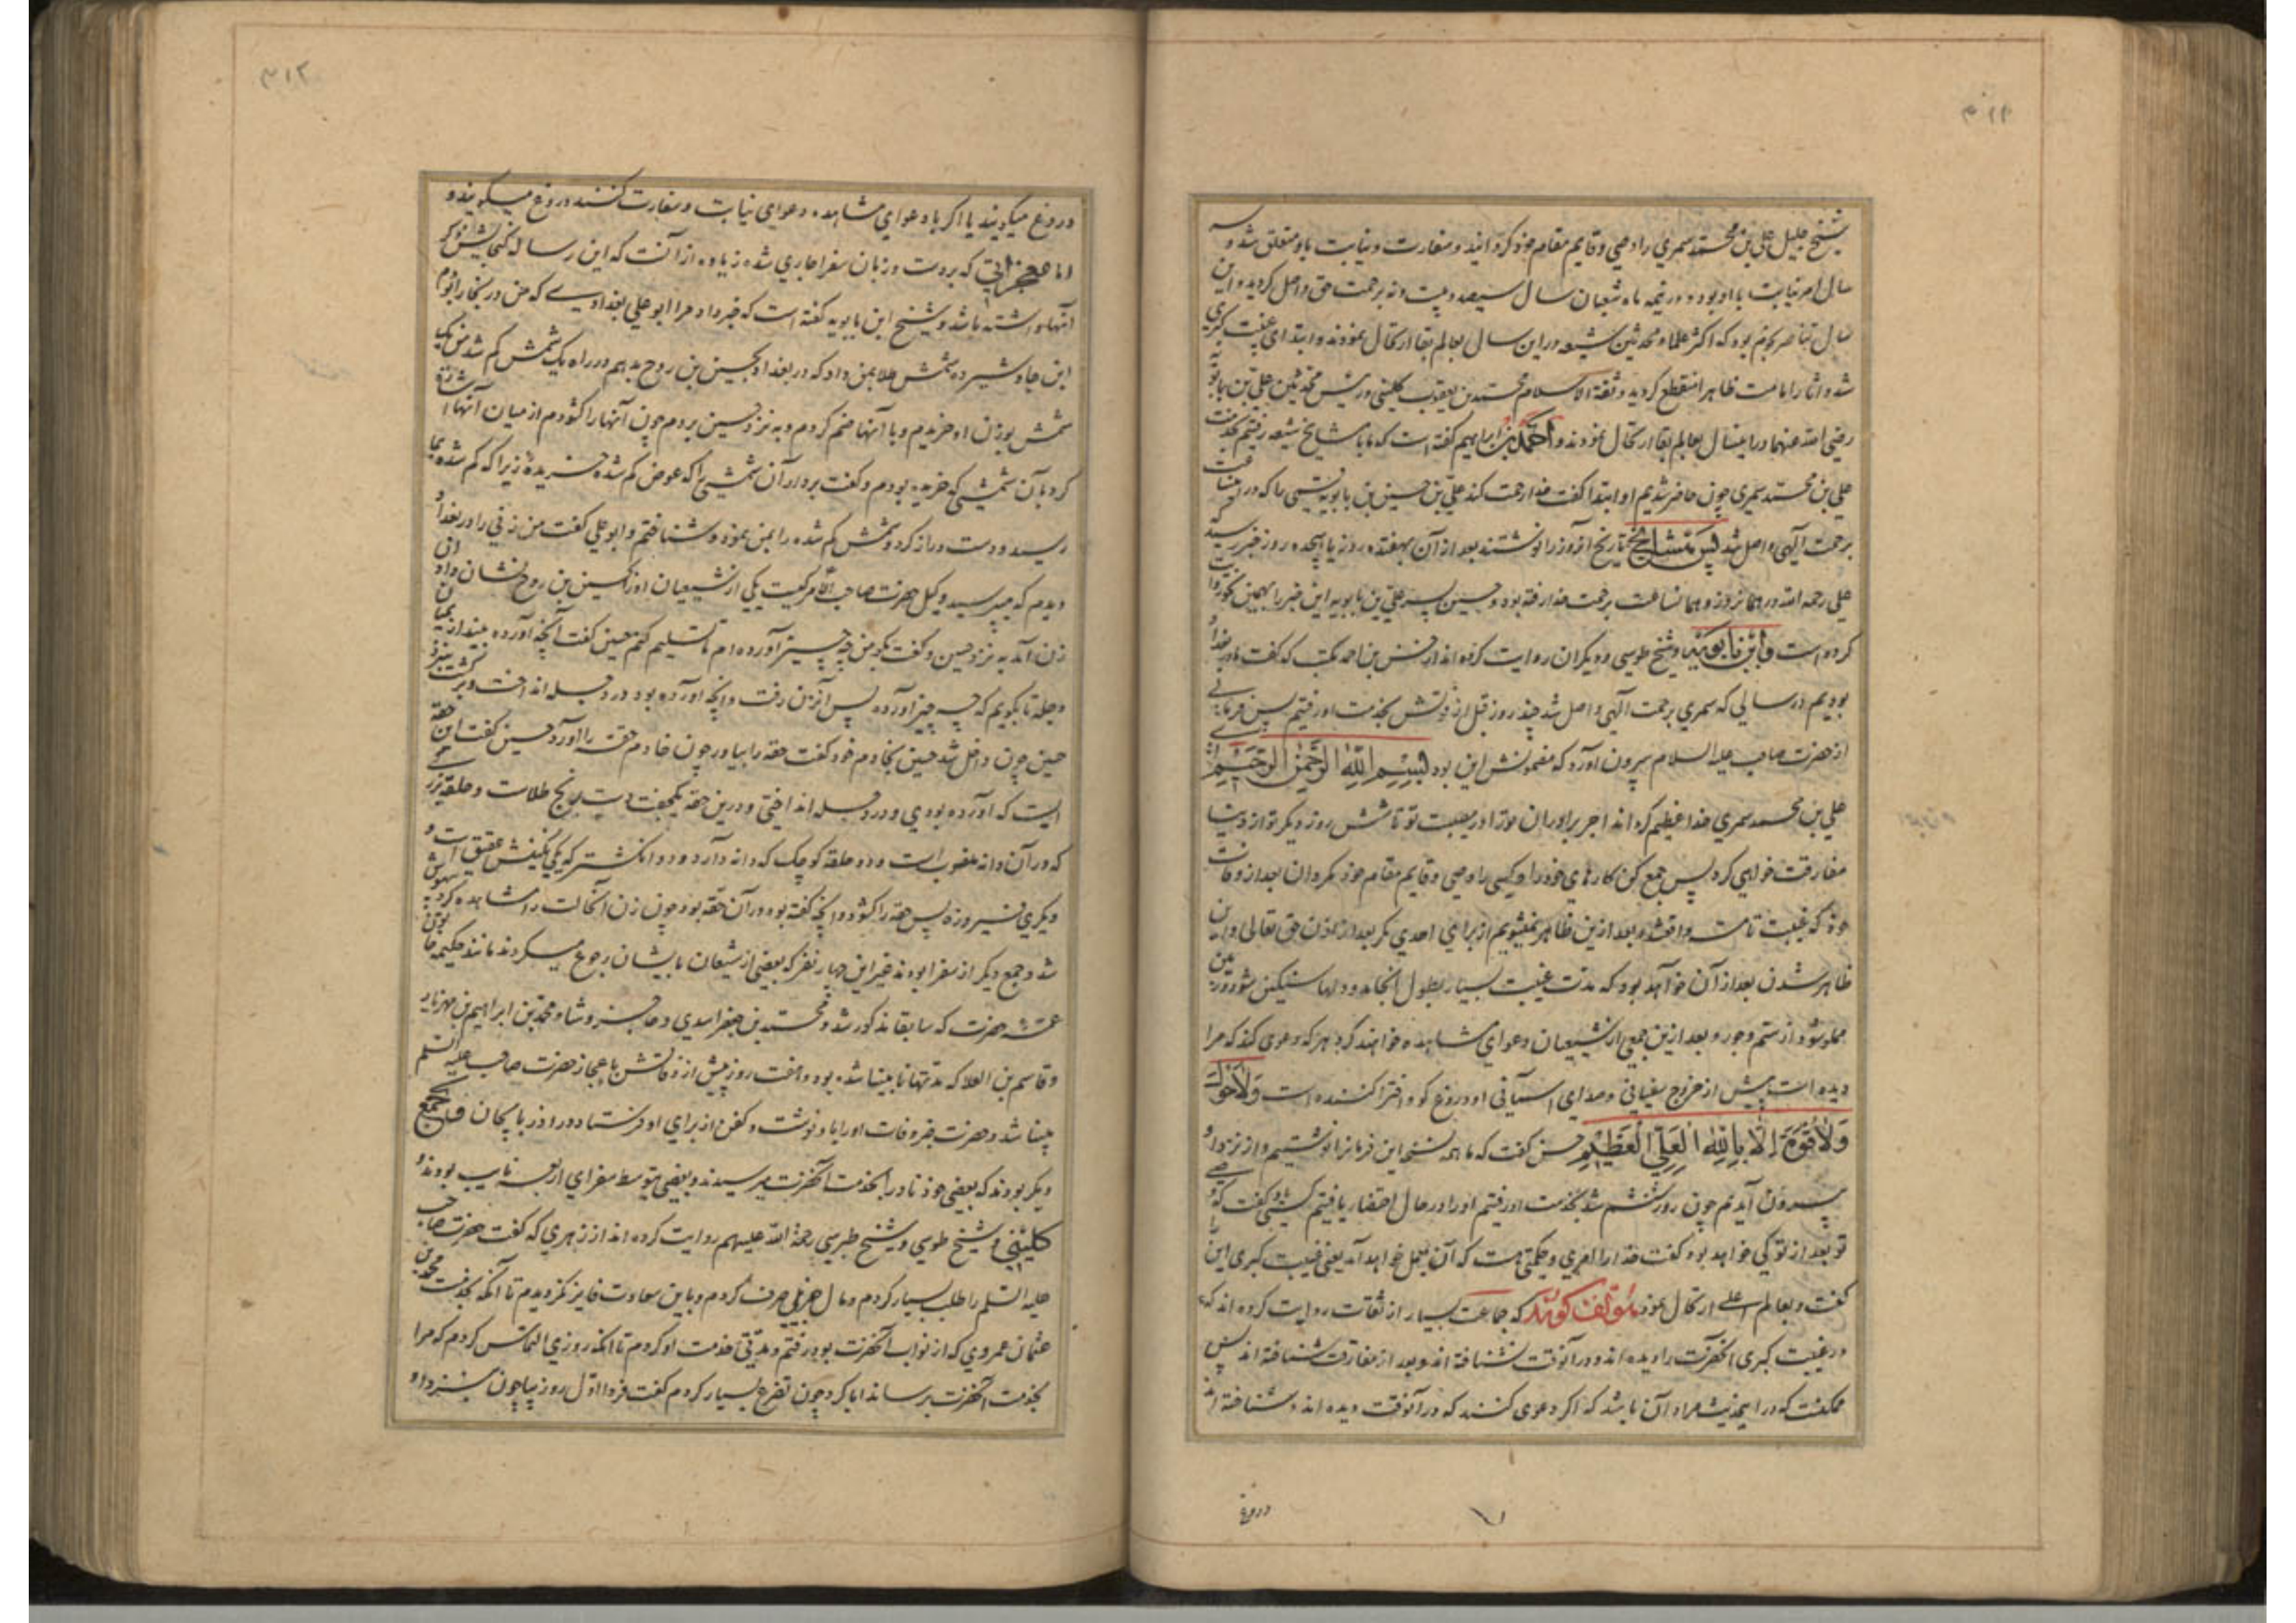 شیخ جلیل علی بن محمد سمری را وصی و قایم مقام خود کردانید و سفارت و نیابت باو متعلق شد و سه
سال امر نیابت با او بود و در نیمه ماه شعبان سال سیصد و بیست و نه برحمت حق واصل کردید و این
سال تناثر نجوم بود که اکثر علما و محدثین شیعه در این سال بعالم بقا ارتحال نمودند و ابتدای غیبت کبری
شد و آثار امامت ظاهرا منقطع کردید و ثقة الاسلام محمد بن یعقوب کلینی و رئیس محدثین علی بن بابویه
رضی الله عنهما در اینسال بعالم بقا ارتحال نمودند و احمد بن ابراهیم کفته است که ما با مشایخ شیعه رفتیم بخدمت
علی بن محمد سمری چون حاضر شدیم او ابتدا کفت خدا رحمت کند علی بن حسین بن بابویه قمی را که در این ساعت
برحمت آلهی واصل شد پس مشایخ تاریخ آنروز را نوشتند بعد از آن بهفده روز یا هیجده روز خبر رسید که
علی رحمه الله در همانروز و همانساعت برحمت خدا رفته بود و حسین پسر علی بن بابویه این خبر را بهمین نحو روایت
کرده است و ابن بابویه و شیخ طوسی و دیکران روایت کرده اند از حسن بن احمد مکتب که کفت ما در بغداد
بودیم در سالی که سمری برحمت آلهی واصل شد چند روز قبل از فوتش بخدمت او رفتیم پس فرمانی
از حضرت صاحب علیه السلام بیرون آورد که مضمونش این بود بسم الله الرحمن الرحیم ای
علی بن محمد سمری خدا عظیم کرداند اجر برادران تو را در مصیبت تو تا شش روز دیکر تو از دنیا
مفارقت خواهی کرد پس جمع کن کارهای خود را و کسی را وصی و قایم مقام خود مکردان بعد از وفات
خود که غیبت تامه واقع شد و بعد ازین ظاهر نمیشویم از برای احدی مکر بعد از اذن حق تعالی و این
ظاهر شدن بعد از آن خواهد بود که مدت غیبت بسیار بطول انجامد و دلها سنکین شود و زمین
مملو شود از ستم و جور و بعد ازین جمعی از شیعیان دعوای مشاهده خواهند کرد هر که دعوی کند که مرا
دیده است پیش از خروج سفیانی و صدای آسمانی او دروغ کو و افترا کننده است ولا حول
ولا قوة الا بالله العلی العظیم حسن کفت که ما همه نسخه این فرمان را نوشتیم و از نزد او
بیرون آمدیم چون روز ششم شد بخدمت او رفتیم او را در حال احتضار یافتیم کسی باو کفت که وصی
تو بعد از تو کی خواهد بود کفت خدا را امری و حکمتی هست که آن بعمل خواهد آمد یعنی غیبت کبری این را
کفت و بعالم اعلی ارتحال نمود مؤلف کوید که جماعت بسیار از ثقات روایت کرده اند که
در غیبت کبری آنحضرت را دیده اند و در آنوقت نشناخته اند و بعد از مفارقت شناخته اند پس
ممکنست که در این حدیث مراد آن باشد که اکر دعوی کنند که در آنوقت دیده اند و شناخته اند
دروغ
دروغ میکویند یا اکر با دعوای مشاهده دعوای نیابت و سفارت کنند دروغ میکویند و
اما معجزاتی که بر دست و زبان سفرا جاری شده زیاده از آنست که این رساله کنجایش ذکر
آنها داشته باشد و شیخ ابن بابویه کفته است که خبر داد مرا ابو علی بغدادی که من در بخارا بودم
ابن جاوشیر ده شمش طلا بمن داد که در بغداد بحسین بن روح بدهم در راه یک شمش کم شد من یک
شمش بوزن او خریدم و با آنها ضم کردم و به نزد حسین بردم چون آنها را کشودم از میان آنها اشاره
کرد بآن شمشی که خریده بودم و کفت بردار آن شمشی را که عوض کم شده خریده زیرا که کم شده بما
رسید و دست دراز کرد و شمش کم شده را بمن نمود و شناختم و ابو علی کفت من زنی را در بغداد
دیدم که میپرسید وکیل حضرت صاحب الامر کیست یکی از شیعیان او را بحسین بن روح نشان داد آن
زن آمد به نزد حسین و کفت بکو من چه چیز آورده ام تا تسلیم کنم حسین کفت آنچه آورده بینداز میان
دجله تا بکویم که چه چیز آورده پس آنزن رفت و آنچه آورده بود در دجله انداخت و برکشت بنزد
حسین چون داخل شد حسین بخادم خود کفت حقه را بیاور چون خادم حقه را آورد حسین کفت این حقه
ایست که آورده بودی و در دجله انداختی و درین حقه یکجفت دست برنج طلاست و حلقه بزرکی
که در آن دانه منصوب است و دو حلقه کوچک که دانه دارد و دو انکشتر که یکی نکینش عقیق است و
دیکری فیروزه پس حقه را کشود و آنچه کفته بود در آن حقه بود چون زن آنحالت را مشاهده کرد بیهوش
شد و جمع دیکر از سفرا بودند غیر این چهار نفر که بعضی از شیعان بایشان رجوع میکردند مانند حکیمه خاتون
عمه حضرت که سابقا مذکور شد و محمد بن جعفر اسدی و حاجز وشا و محمد بن ابراهیم بن مهزیار
و قاسم بن العلا که مدتها نابینا شده بود و هفت روز پیش از وفاتش باعجاز حضرت صاحب علیه السلم
بینا شد و حضرت خبر وفات او را باو نوشت و کفن از برای او فرستاد و در آذربایجان و جمع
دیکر بودند که بعضی خود نادرا بخدمت آنحضرت میرسیدند و بعضی بتوسط سفرای اربعه نایب بودند و
کلینی و شیخ طوسی و شیخ طبرسی رحمة الله علیهم روایت کرده اند از زهری که کفت حضرت صاحب
علیه السلم را طلب بسیار کردم و مال جزیلی صرف کردم و باین سعادت فایز نکردیدم تا آنکه بخدمت محمد بن
عثمان عمروی که از نواب آنحضرت بود رفتم و مدتی خدمت او کردم تا آنکه روزی التماس کردم که مرا
بخدمت آنحضرت برساند ابا کرد چون تضرع بسیار کردم کفت فردا اول روز بیا چون بنزد او